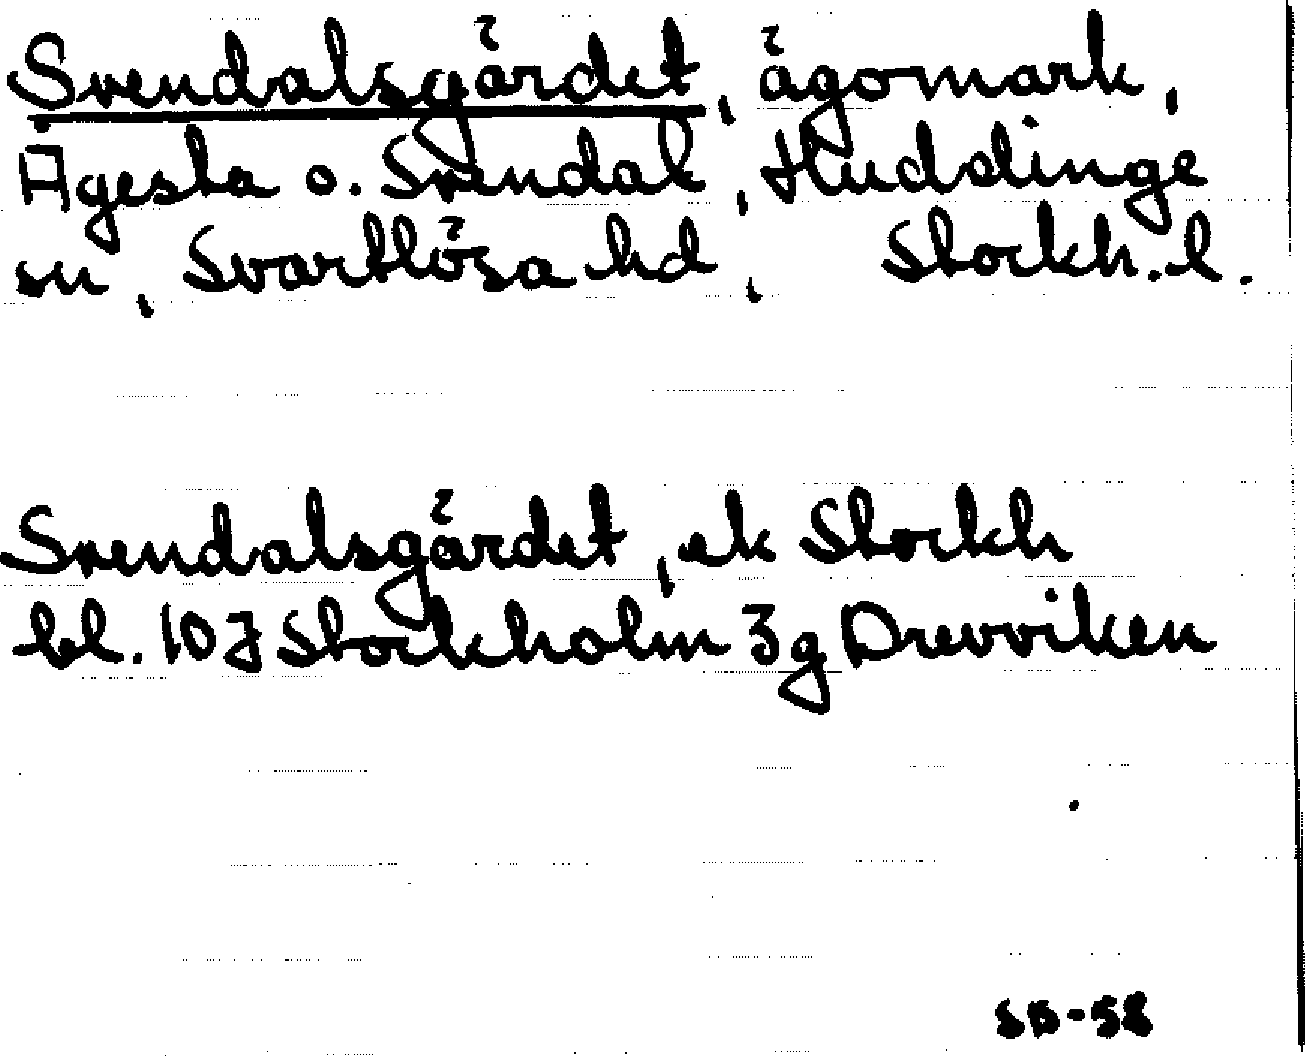 Svendalsgärdet, ägomark,
Ågesta o. Svendal, Huddinge
sn, Svartlösa hd, Stockh. l.
Svendalsgärdet, ek Stockh
bl. 10 J Stockholm 3g Drevviken
SB-58